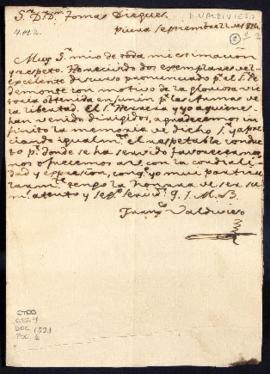 S.r D.r D.n Tomas Dieguez
J. VALDIVIESO
Piura septiembre 22 de 1824
Muy S.or mio de toda mi estimacion
y respeto. Han venido dos exemplares del ex
celente discurso pronunciado p.r el S.or
demonte con motivo de la gloriosa vic
toria obtenida en Junin p.r las armas de
la libertad. El S.or Herrera y yo a quienes
han venido dirigidos, agradecemos in
finito la memoria de dicho S.or y apre
ciando igualm.te el respetable conduc
to p.r donde se ha servido favorecernos,
nos ofrecemos a el con la cordiali
dad y expresion, con q.e yo muy particu
larm.te tengo la honra de ser su
m.s atento y seg.o servid.r Q. S. M. B.
Fran.co Valdivieso